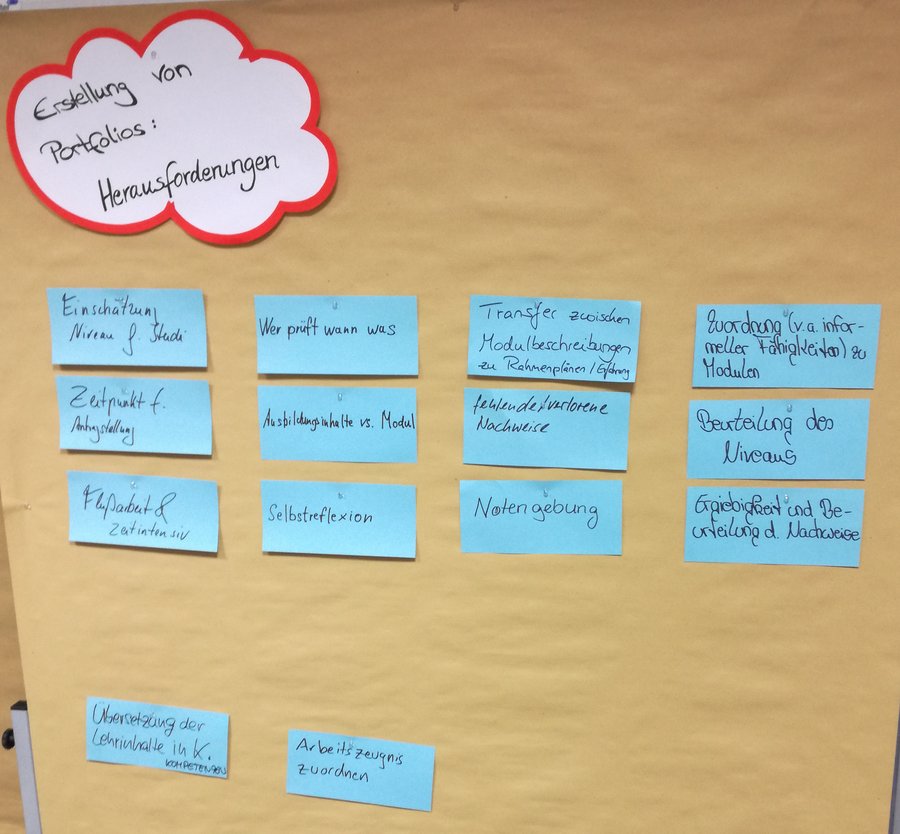 Erstellung von
Portfolios:
Herausforderungen
Einschätzung
Niveau f. Studi
Zeitpunkt f.
Antragstellung
Fleißarbeit &
zeitintensiv
Wer prüft wann was
Ausbildungsinhalte vs. Modul
Selbstreflexion
Transfer zwischen
Modulbeschreibungen
zu Rahmenplänen / Erfahrung
fehlende/verlorene
Nachweise
Notengebung
Zuordnung (v.a. infor-
meller Fähigkeiten) zu
Modulen
Beurteilung des
Niveaus
Ergiebigkeit und Be-
urteilung d. Nachweise
Übersetzung der
Lehrinhalte in K.
KOMPETENZEN
Arbeitszeugnis
zuordnen